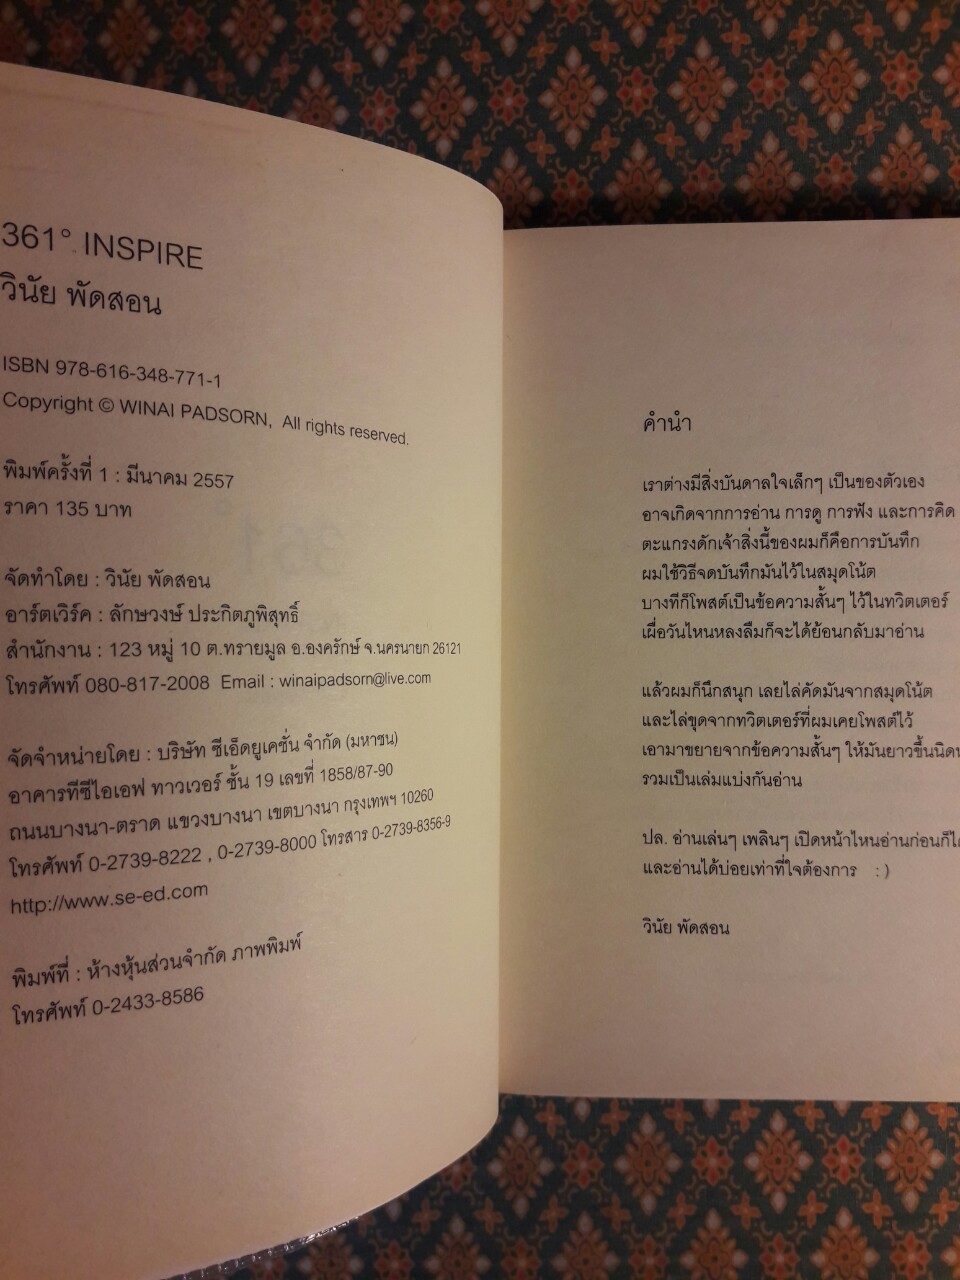 361° INSPIRE
วินัย พัดสอน
ISBN 978-616-348-771-1
Copyright © WINAI PADSORN, All rights reserved.
พิมพ์ครั้งที่ 1 : มีนาคม 2557
ราคา 135 บาท
จัดทำโดย : วินัย พัดสอน
อาร์ตเวิร์ค : ลักษวงษ์ ประกิตภูพิสุทธิ์
สำนักงาน : 123 หมู่ 10 ต.ทรายมูล อ.องครักษ์ จ.นครนายก 26121
โทรศัพท์ 080-817-2008 Email : winaipadsorn@live.com
จัดจำหน่ายโดย : บริษัท ซีเอ็ดยูเคชั่น จำกัด (มหาชน)
อาคารทีซีไอเอฟ ทาวเวอร์ ชั้น 19 เลขที่ 1858/87-90
ถนนบางนา-ตราด แขวงบางนา เขตบางนา กรุงเทพฯ 10260
โทรศัพท์ 0-2739-8222 , 0-2739-8000 โทรสาร 0-2739-8356-9
http://www.se-ed.com
พิมพ์ที่ : ห้างหุ้นส่วนจำกัด ภาพพิมพ์
โทรศัพท์ 0-2433-8586
คำนำ
เราต่างมีสิ่งบันดาลใจเล็กๆ เป็นของตัวเอง
อาจเกิดจากการอ่าน การดู การฟัง และการคิด
ตะแกรงดักเจ้าสิ่งนี้ของผมก็คือการบันทึก
ผมใช้วิธีจดบันทึกมันไว้ในสมุดโน้ต
บางทีก็โพสต์เป็นข้อความสั้นๆ ไว้ในทวิตเตอร์
เผื่อวันไหนหลงลืมก็จะได้ย้อนกลับมาอ่าน
แล้วผมก็นึกสนุก เลยไล่คัดมันจากสมุดโน้ต
และไล่ขุดจากทวิตเตอร์ที่ผมเคยโพสต์ไว้
เอามาขยายจากข้อความสั้นๆ ให้มันยาวขึ้น
รวมเป็นเล่มแบ่งกันอ่าน
ปล. อ่านเล่นๆ เพลินๆ เปิดหน้าไหนอ่านก่อน
และอ่านได้บ่อยเท่าที่ใจต้องการ :)
วินัย พัดสอน